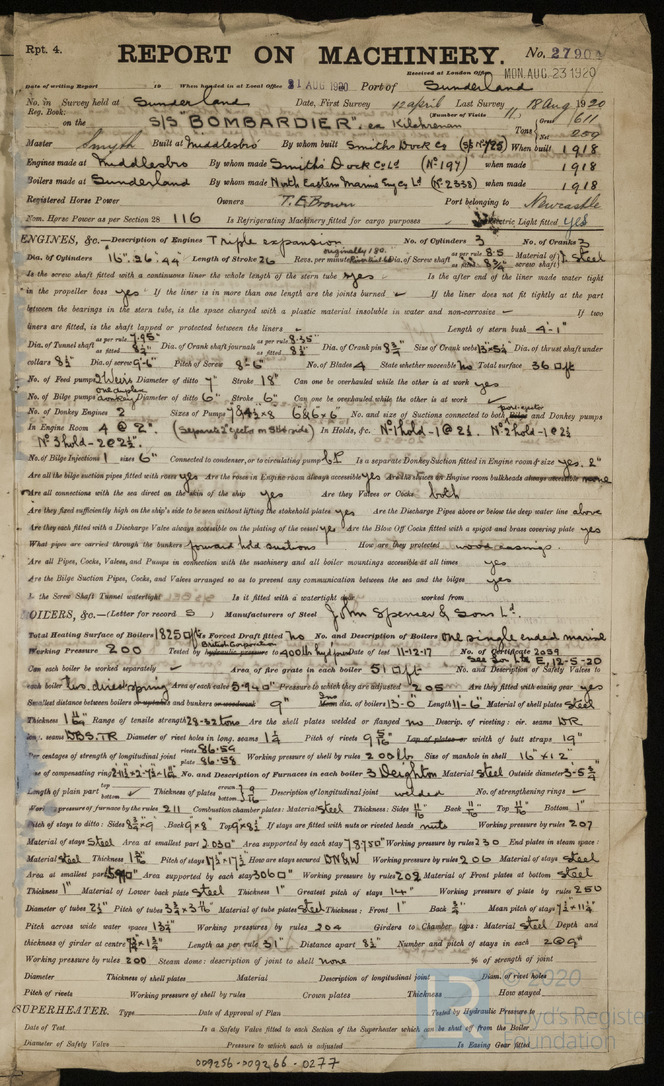 Rpt. 4.
REPORT ON MACHINERY. No. 27904
Received at London Office MON. AUG. 23 1920
Date of writing Report 19 When handed in at Local Office 21 AUG 1920 Port of Sunderland
No. in Survey held at Sunderland Date, First Survey 12 april Last Survey 18 Aug 1920
Reg. Book. (Number of Visits 11)
on the S/S "BOMBARDIER", ex Kilchrenan Tons Gross 611 Net 209
Master Smyth Built at Middlesbro' By whom built Smiths Dock Co When built 1918
Engines made at Middlesbro By whom made Smith's Dock Co Ld (No 197) when made 1918
Boilers made at Sunderland By whom made North Eastern Marine Eng Co Ld (No 2338) when made 1918
Registered Horse Power Owners T. E. Brown Port belonging to Newcastle
Nom. Horse Power as per Section 28 116 Is Refrigerating Machinery fitted for cargo purposes Is Electric Light fitted yes
ENGINES, &c.—Description of Engines Triple expansion No. of Cylinders 3 No. of Cranks 3
Dia. of Cylinders 16". 26". 44" Length of Stroke 26 Revs. per minute Dia. of Screw shaft as per rule 8.5 as fitted 8¾" Material of screw shaft Steel
Is the screw shaft fitted with a continuous liner the whole length of the stern tube yes Is the after end of the liner made water tight
in the propeller boss yes If the liner is in more than one length are the joints burned If the liner does not fit tightly at the part
between the bearings in the stern tube, is the space charged with a plastic material insoluble in water and non-corrosive If two
liners are fitted, is the shaft lapped or protected between the liners Length of stern bush 4'-1"
Dia. of Tunnel shaft as per rule 7.95" as fitted 8¼" Dia. of Crank shaft journals as per rule 8.35" as fitted 8½" Dia. of Crank pin 8¾" Size of Crank webs Dia. of thrust shaft under
collars 8½ Dia. of screw 9'-6" Pitch of Screw 8'-6" No. of Blades 4 State whether moveable No Total surface 36 □ft
No. of Feed pumps 2 Weirs Diameter of ditto 7" Stroke 18" Can one be overhauled while the other is at work yes
No. of Bilge pumps one duplex donkey Diameter of ditto 6" Stroke 6" Can one be overhauled while the other is at work
No. of Donkey Engines 2 Sizes of Pumps 7&4½×8 6&6×6 No. and size of Suctions connected to both Bilge and Donkey pumps
In Engine Room 4 @ 2". (Separate 2" ejector on stbd side) In Holds, &c. No 1 hold - 1 @ 2½. No 2 hold - 1 @ 2½
No 3 hold - 2 @ 2½".
No. of Bilge Injections 1 sizes 6" Connected to condenser, or to circulating pump C.P. Is a separate Donkey Suction fitted in Engine room & size yes. 2"
Are all the bilge suction pipes fitted with roses yes Are the roses in Engine room always accessible yes Are the sluices on Engine room bulkheads always accessible none
Are all connections with the sea direct on the skin of the ship yes Are they Valves or Cocks both
Are they fixed sufficiently high on the ship's side to be seen without lifting the stokehold plates yes Are the Discharge Pipes above or below the deep water line above
Are they each fitted with a Discharge Valve always accessible on the plating of the vessel yes Are the Blow Off Cocks fitted with a spigot and brass covering plate yes
What pipes are carried through the bunkers forward hold suctions How are they protected wood casings.
Are all Pipes, Cocks, Valves, and Pumps in connection with the machinery and all boiler mountings accessible at all times yes
Are the Bilge Suction Pipes, Cocks, and Valves arranged so as to prevent any communication between the sea and the bilges yes
Is the Screw Shaft Tunnel watertight Is it fitted with a watertight door worked from
OILERS, &c.—(Letter for record S) Manufacturers of Steel John Spencer & Sons Ld.
Total Heating Surface of Boilers 1825 □ft Is Forced Draft fitted No No. and Description of Boilers one single ended marine
Working Pressure 200 Tested by British Corporation hydraulic pressure to 400 lb hyd pres Date of test 11-12-17 No. of Certificate 2039
See Sur Ltr E, 12-5-20
Can each boiler be worked separately Area of fire grate in each boiler 51 □ft No. and Description of Safety Valves to
each boiler two, direct spring Area of each valve 5.940" Pressure to which they are adjusted 205 Are they fitted with easing gear yes
Smallest distance between boilers or uptakes and bunkers or woodwork 9" Mean dia. of boilers 13'-0" Length 11'-6" Material of shell plates Steel
Thickness Range of tensile strength 28-32 tons Are the shell plates welded or flanged no Descrip. of riveting: cir. seams DR
long. seams DBS.TR Diameter of rivet holes in long. seams 1¼ Pitch of rivets Lap of plates or width of butt straps 19"
Per centages of strength of longitudinal joint rivets 86.59 plate 86.58 Working pressure of shell by rules 200 lbs Size of manhole in shell 16" × 12"
Size of compensating ring No. and Description of Furnaces in each boiler 3 Deighton Material Steel Outside diameter 3'-5¾"
Length of plain part top bottom Thickness of plates crown bottom Description of longitudinal joint welded No. of strengthening rings
Working pressure of furnace by the rules 211 Combustion chamber plates: Material Steel Thickness: Sides 11/16 Back 11/16 Top 11/16 Bottom 1"
Pitch of stays to ditto: Sides Back 9×8" Top If stays are fitted with nuts or riveted heads nuts Working pressure by rules 207
Material of stays Steel Area at smallest part 2.030" Area supported by each stay Working pressure by rules 230 End plates in steam space:
Material Steel Thickness Pitch of stays 17½×17½ How are stays secured DN&W Working pressure by rules 206 Material of stays Steel
Area at smallest part Area supported by each stay 306□" Working pressure by rules 202 Material of Front plates at bottom Steel
Thickness 1" Material of Lower back plate Steel Thickness 1" Greatest pitch of stays 14" Working pressure of plate by rules 250
Diameter of tubes 2½" Pitch of tubes Material of tube plates Steel Thickness: Front 1" Back ¾" Mean pitch of stays
Pitch across wide water spaces 13¾" Working pressures by rules 204 Girders to Chamber tops: Material Steel Depth and
thickness of girder at centre Length as per rule 31" Distance apart 8½" Number and pitch of stays in each 2 @ 9"
Working pressure by rules 200 Steam dome: description of joint to shell None % of strength of joint
Diameter Thickness of shell plates Material Description of longitudinal joint Diam. of rivet holes
Pitch of rivets Working pressure of shell by rules Crown plates Thickness How stayed
SUPERHEATER. Type Date of Approval of Plan Tested by Hydraulic Pressure to
Date of Test Is a Safety Valve fitted to each Section of the Superheater which can be shut off from the Boiler
Diameter of Safety Valve Pressure to which each is adjusted Is Easing Gear fitted
© 2020
Lloyd's Register
Foundation
009256-009266-0277